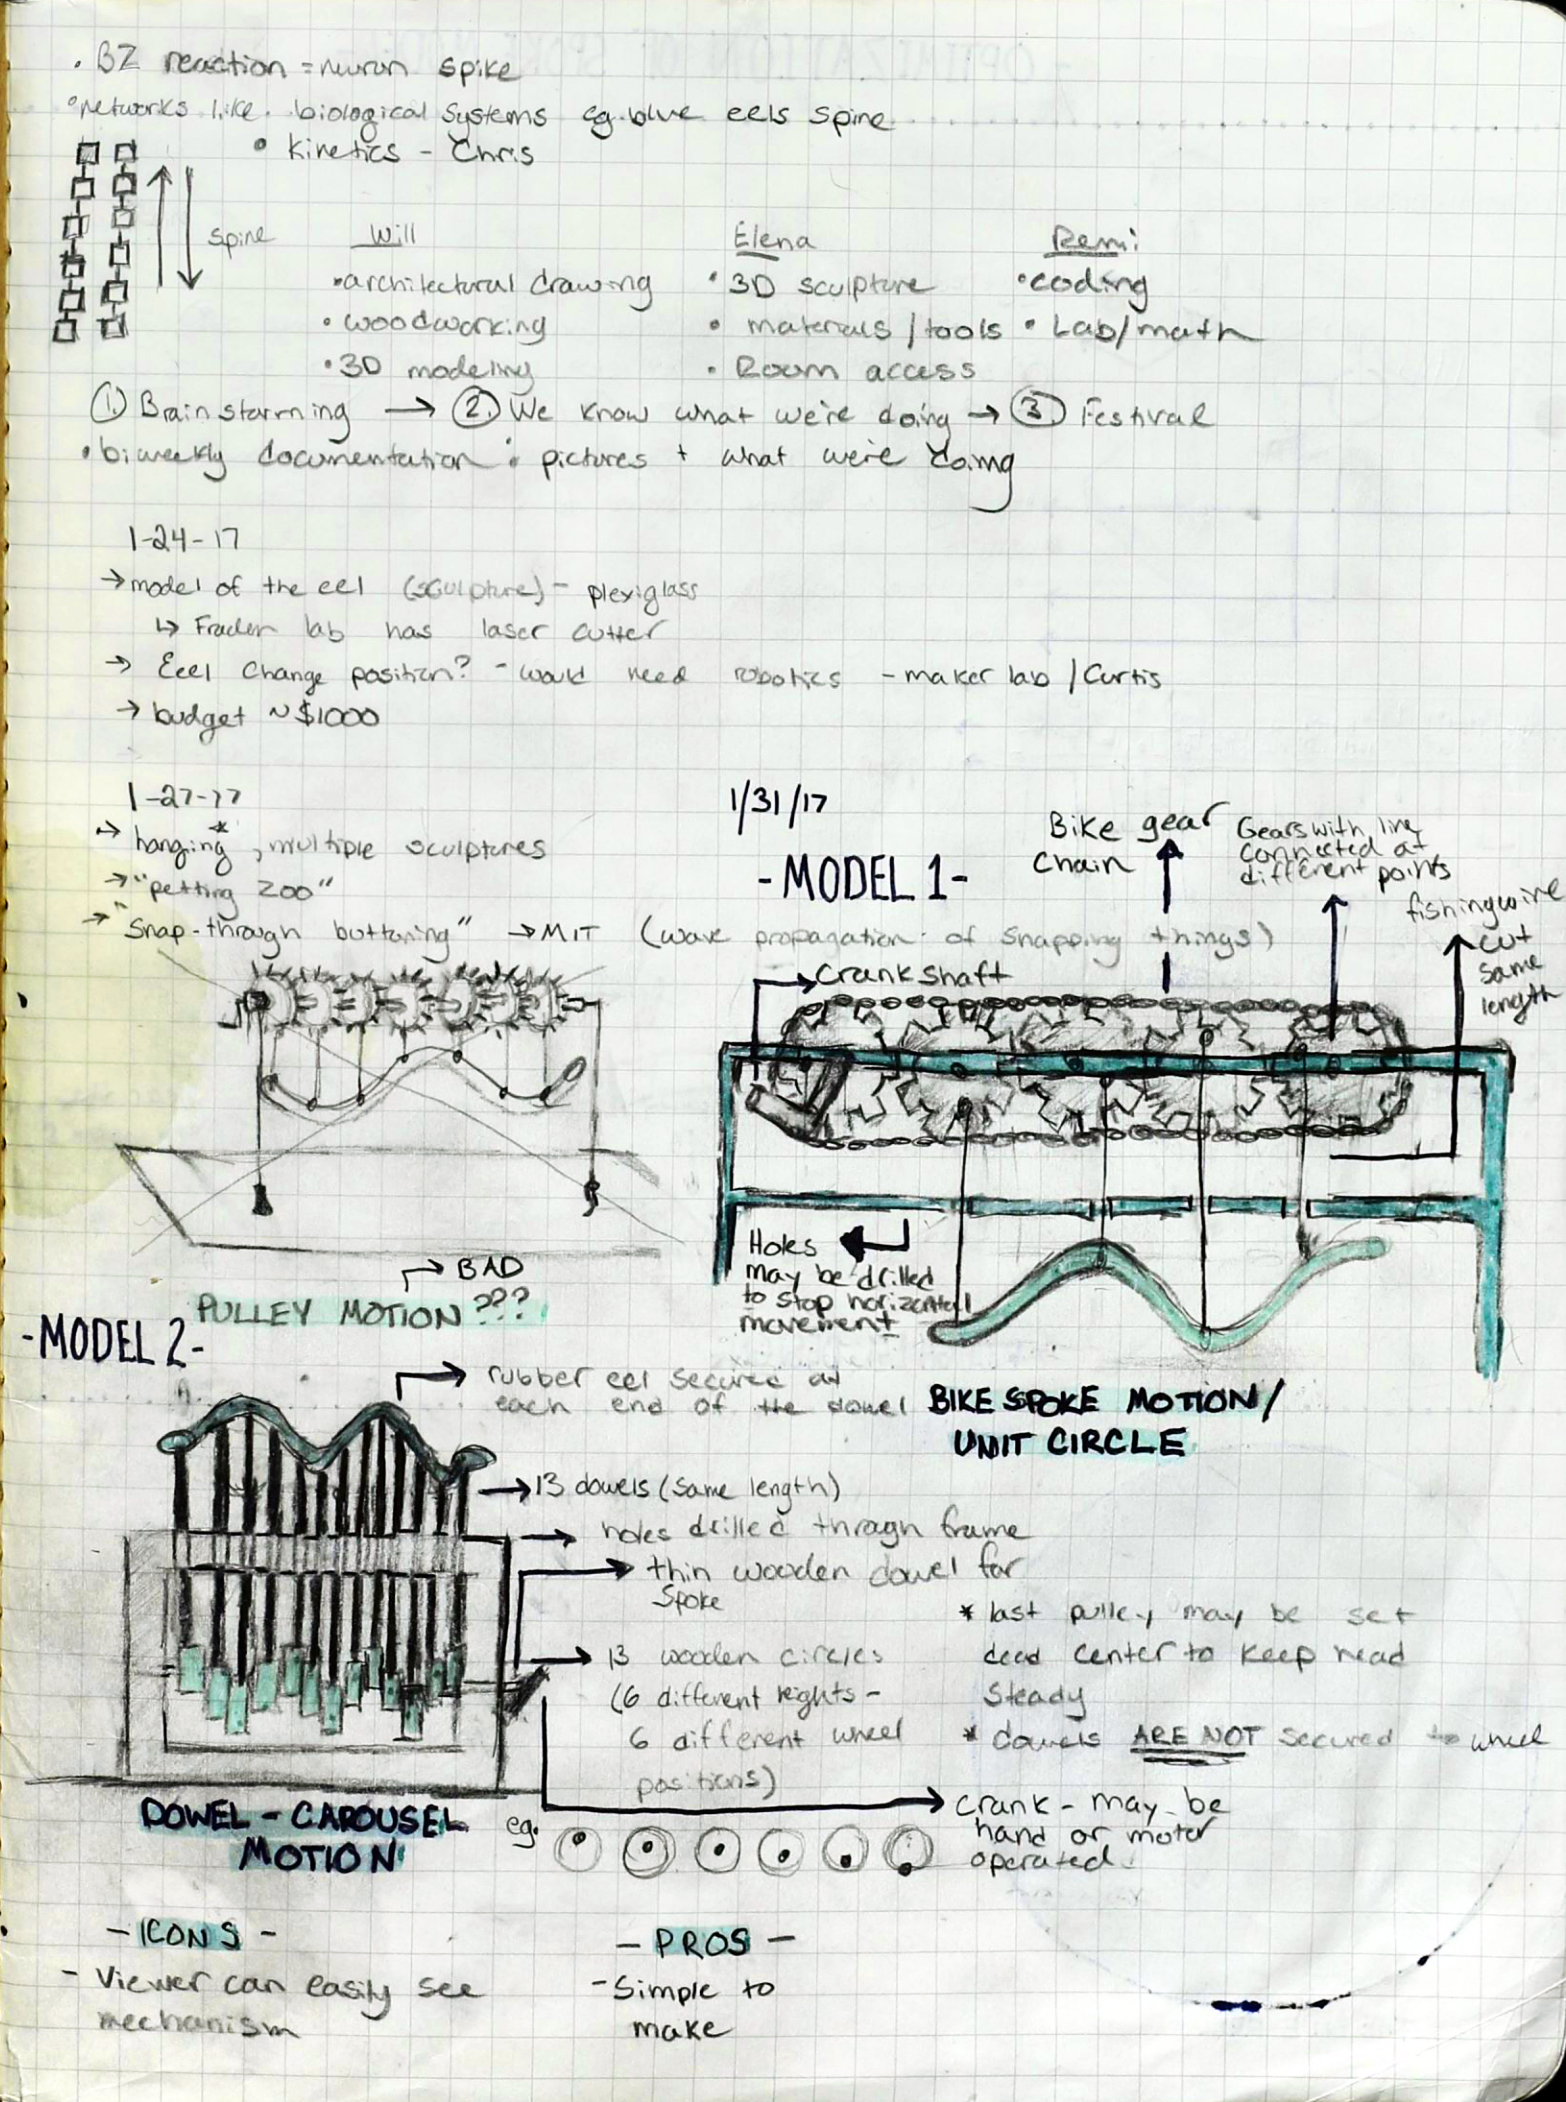 • BZ reaction = neuron spike
• networks like biological systems eg. blue eels spine
• kinetics - Chris
spine
Will
• architectural drawing
• woodworking
• 3D modeling
Elena
• 3D sculpture
• materials / tools
• Room access
Remi
• coding
• Lab/math
① Brainstorming → ② We know what we're doing → ③ Festival
• biweekly documentation : pictures + what we're doing
1-24-17
→ model of the eel (sculpture) - plexiglass
↳ Fraden lab has laser cutter
→ Eeel change position? - would need robotics - maker lab / Curtis
→ budget ~ $1000
1-27-17
→ hanging*, multiple sculptures
→ "petting zoo"
→ "Snap-through buttoning" → MIT (wave propagation of snapping things)
BAD
PULLEY MOTION ???
1/31/17
- MODEL 1 -
Bike gear
chain
Gears with line
connected at
different points
fishing wire
cut
same
length
Crankshaft
Holes
may be drilled
to stop horizontal
movement
BIKE SPOKE MOTION /
UNIT CIRCLE
- MODEL 2 -
rubber eel secured at
each end of the dowel
→ 13 dowels (same length)
→ holes drilled through frame
→ thin wooden dowel for
spoke
→ 13 wooden circles
(6 different heights -
6 different wheel
positions)
* last pulley may be set
dead center to keep head
steady
* dowels ARE NOT secured to wheel
crank - may be
hand or motor
operated
eg.
DOWEL - CAROUSEL
MOTION
- ICONS -
- Viewer can easily see
mechanism
- PROS -
- Simple to
make